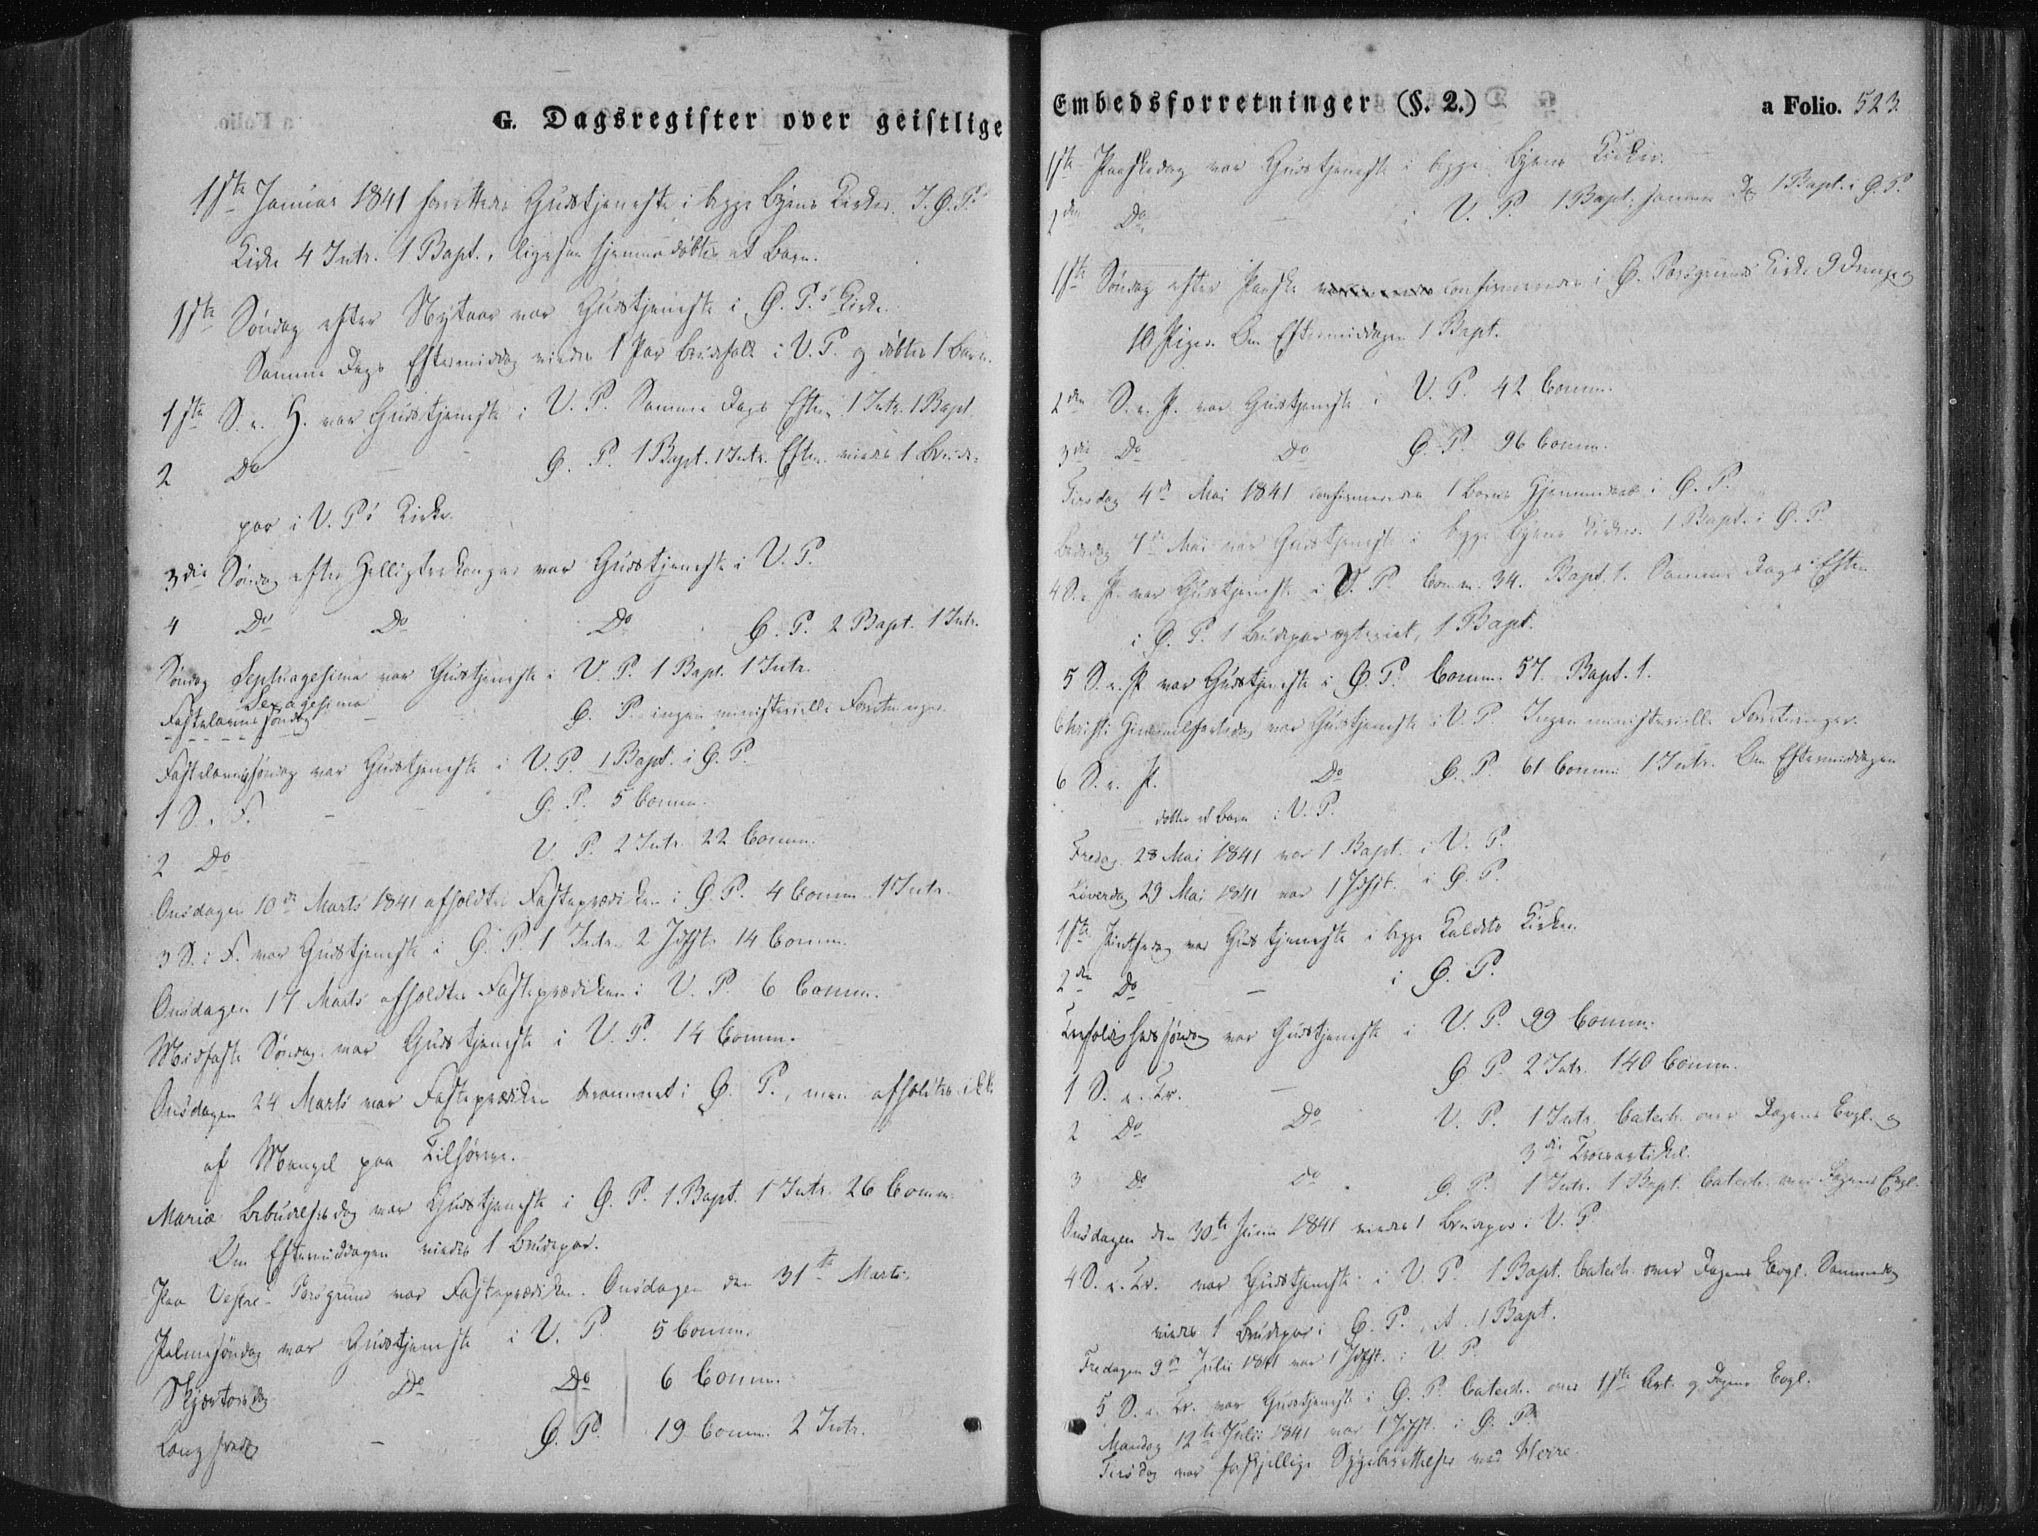 G. Dagsregister over geistlige
1ste Januar 1841 forrettedes Gudstjeneste i begge Byens Kirker. I Ø. P.s
Kirke 4 Intr. 1 Bapt., ligesom hjemmedøbtes et Barn.
1ste Søndag efter Nytaar var Gudstjeneste i Ø. P.s Kirke.
Samme Dags Eftermiddag viedes 1 Par Brudefolk i V. P. og døbtes 1 Barn.
1ste S. e. H. var Gudstjeneste i V. P. Samme Dags Efterm. 1 Intr. 1 Bapt.
2 Do - - Ø. P. 1 Bapt. 1 Intr. Efterm. viedes 1 Brude-
par i V. P.s Kirke.
3die Søndag efter Helligtrekonger var Gudstjeneste i V. P.
4 Do Do Do Ø. P. 2 Bapt. 1 Intr.
Søndag Septuagesima var Gudstjeneste i V. P. 1 Bapt. 1 Intr.
Sexagesima
Fastelavns Søndag - Ø. P. ingen ministerielle Forretninger.
Fastelavnssøndag var Gudstjeneste i V. P. 1 Bapt. i Ø. P.
1 S. i F. - - Ø. P. 5 Comm.
2 Do - V. P. 2 Intr. 22 Comm.
Onsdagen 10de Marts 1841 afholdtes Fasteprædiken i Ø. P. 4 Comm. 1 Intr.
3 S. i F. var Gudstjeneste i Ø. P. 1 Intr. 2 Jdfst. 14 Comm.
Onsdagen 17 Marts afholdtes Fasteprædiken i V. P. 6 Comm.
Midfaste Søndag var Gudstjeneste i V. P. 14 Comm.
Onsdagen 24 Marts var Fasteprædiken berammet i Ø. P., men afholdtes ikke
af Mangel paa Tilhørere.
Mariæ Bebudelsesdag var Gudstjeneste i Ø. P. 1 Bapt. 1 Intr. 26 Comm.
Om Eftermiddagen viedes 1 Brudepar.
Paa Vestre-Porsgrund var Fasteprædiken Onsdagen den 31te Marts.
Palmesøndag var Gudstjeneste i V. P. 5 Comm.
Skjærtorsdag Do Do 6 Comm.
Langfredag - Ø. P. 19 Comm. 2 Intr.
Embedsforretninger (§. 2.) a Folio. 523.
1ste Paaskedag var Gudstjeneste i begge Byens Kirker.
2den Do - i V. P. 1 Bapt. samme Dag 1 Bapt. i Ø. P.
1ste Søndag efter Paaske confirmeredes i Ø. Porsgrunds Kirke 9 Drenge og
10 Piger. Om Eftermiddagen 1 Bapt.
2den S. e. P. var Gudstjeneste i V. P. 42 Comm.
3die Do Do Ø. P. 96 Comm.
Tirsdag 4de Mai 1841 confirmeredes 1 Barns Hjemmedaab i Ø. P.
Bededag 7de Mai var Gudstjeneste i begge Byens Kirker. 1 Bapt. i Ø. P.
4 S. e. P. var Gudstjeneste i V. P. Comm. 34. Bapt. 1. Samme Dags Efterm.
i Ø. P. 1 Brudepar ægteviet, 1 Bapt.
5 S. e. P. var Gudstjeneste i Ø. P. Comm. 57. Bapt. 1.
Christi Himmelfartsdag var Gudstjeneste i V. P. Ingen ministerielle Forretninger.
6 S. e. P. Do Ø. P. 61 Comm. 1 Intr. Om Eftermiddagen
døbtes et Barn i V. P.
Fredag 28 Mai 1841 var 1 Bapt. i V. P.
Løverdag 29 Mai 1841 var 1 Jdfst. i Ø. P.
1ste Pintsedag var Gudstjeneste i begge Kaldets Kirker.
2den Do - i Ø. P.
Trefoldighedssøndag var Gudstjeneste i V. P. 99 Comm.
1 S. e. Tr. - Ø. P. 2 Intr. 140 Comm.
2 Do Do V. P. 1 Intr. Catech. over Dagens Evgl. og
3die Troesartikel.
3 Do Do Ø. P. 1 Intr. 1 Bapt. Catech. over Dagens Evgl.
Onsdagen den 30te Juni 1841 viedes 1 Brudepar i V. P.
4 S. e. Tr. var Gudstjeneste i V. P. 1 Bapt. Catech. over Dagens Evgl. Sammedag
viedes 1 Brudepar i Ø. P. 1 Bapt.
Fredagen 9de Julii 1841 var 1 Jdfst. i V. P.
5 S. e. Tr. var Gudstjeneste i Ø. P. Catech. over 1ste Art. og Dagens Evgl.
Mandag 12te Julii 1841 var 1 Jdfst. i Ø. P.
Tirsdag var forskjellige Sygeberettelser ved Herre.